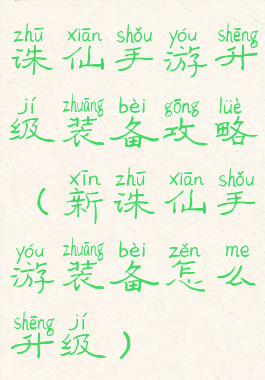 zhū xiān shǒu yóu shēng
诛仙手游升
jí zhuāng bèi gōng lüè
级装备攻略
xīn zhū xiān shǒu
(新诛仙手
yóu zhuāng bèi zěn me
游装备怎么
shēng jí
升级)